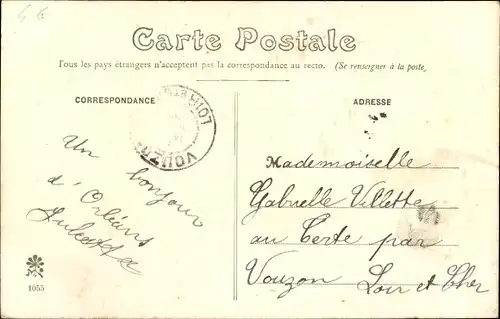 4 €
Carte Postale
Tous les pays étrangers n'acceptent pas la correspondance au recto. (Se renseigner à la poste,
CORRESPONDANCE
ADRESSE
VOUZON
Un bonjour
d'Orléans
Mademoiselle
Gabrielle Villette
au Certe par
Vouzon Loir et Cher
1055